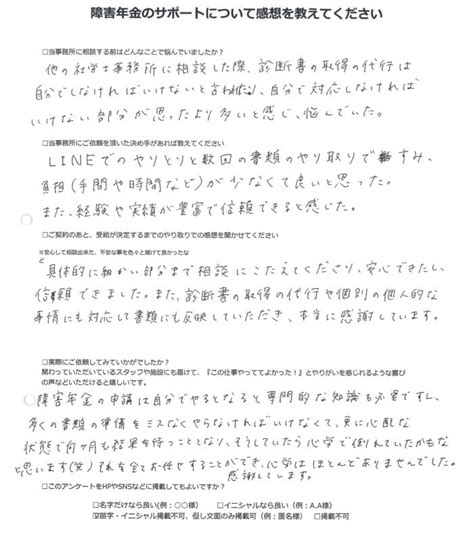 障害年金のサポートについて感想を教えてください
□当事務所に相談する前はどんなことで悩んでいましたか？
他の社労士事務所に相談した際、診断書の取得の代行は
自分でしなければいけないと言われたり、自分で対応しなければ
いけない部分が思ったより多いと感じ、悩んでいた。
□当事務所にご依頼を頂いた決め手があれば教えてください
LINEでのやりとりと数回の書類のやり取りですみ、
負担(手間や時間など)が少なくて良いと思った。
また、経験や実績が豊富で信頼できると感じた。
□ご契約のあと、受給が決定するまでのやり取りでの感想を聞かせてください
※安心して相談出来た、不安な事を色々と聞けて良かったな
ど
具体的に細かい部分まで相談にこたえてくださり、安心できたし、
信頼できました。また、診断書の取得の代行や個別の個人的な
事情にも対応して書類にも反映していただき、本当に感謝しています。
□実際にご依頼してみていかがでしたか？
関わっていただいているスタッフや施設にも届けて、『この仕事やっててよかった！』とやりがいを感じれるような喜び
の声などいただけると嬉しいです。
障害年金の申請は自分でやるとなると専門的な知識も必要ですし、
多くの書類の準備をミスなくやらなければいけなくて、更に心配な
状態で何ヶ月も結果を待つこととなり、そうしていたら心労で倒れていたかもな
と思います(笑)それを全てお任せすることができ、心労はほとんどありませんでした。
感謝しています。
□このアンケートをHPやSNSなどに掲載してもよいですか？
□名字だけなら良い(例：〇〇様) □イニシャルなら良い（例：A.A様）
☑苗字・イニシャル掲載不可、但し文面のみ掲載可（例：匿名様） □掲載不可